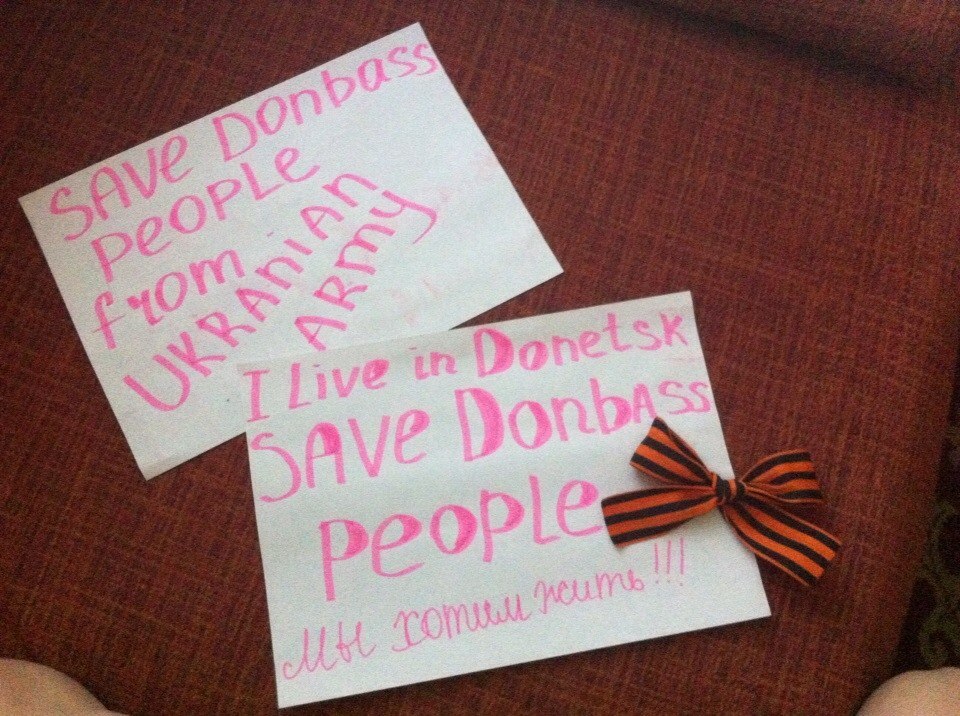 SAVE Donbass
PEOPLE
from
UKRAniAn
ARMY
I Live in Donetsk
SAVE DonbASS
PEOPLE
Мы хотим жить!!!